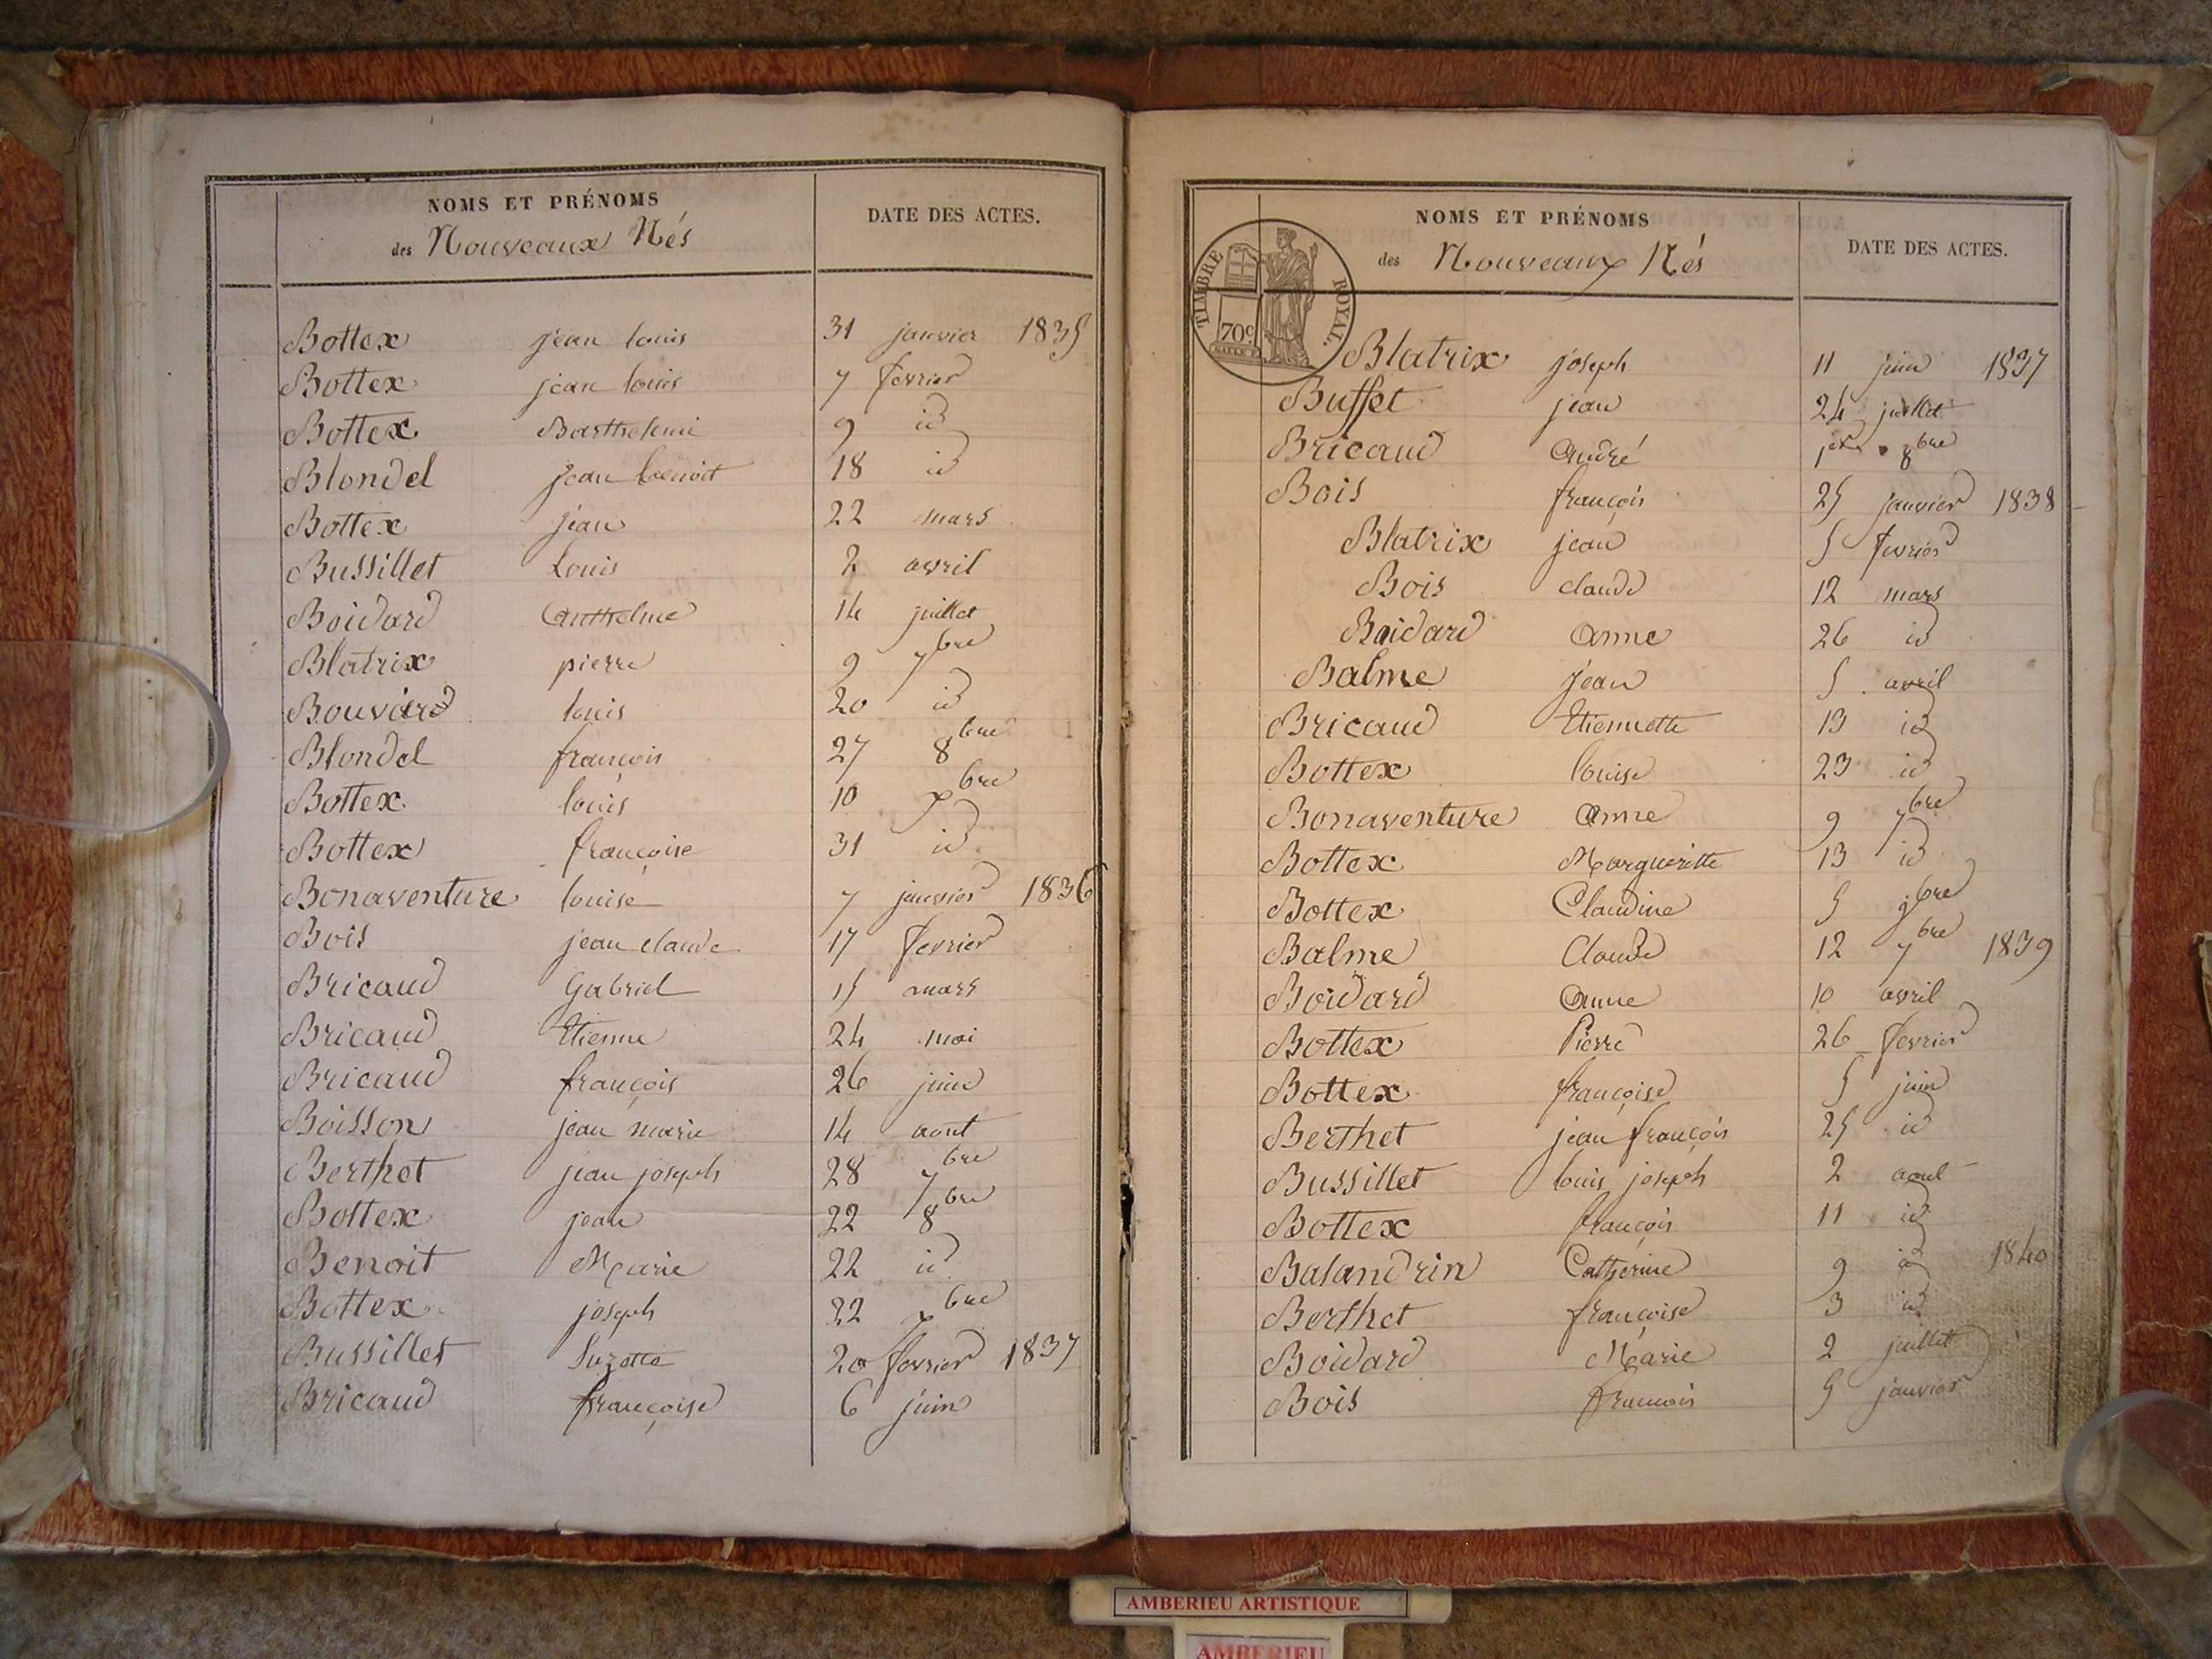 NOMS ET PRÉNOMS
des Nouveaux Nés
DATE DES ACTES.
Bottex jean louis 31 janvier 1835
Bottex jean louis 7 fevrier
Bottex Barthelemi 9 id
Blondel jean benoit 18 id
Bottex jean 22 mars
Bussillet Louis 2 avril
Boidard Anthelme 14 juillet
Blatrix pierre 9 7bre
Bouvard louis 20 id
Blondel françois 27 8bre
Bottex louis 10 xbre
Bottex françoise 31 id
Bonaventure louise 7 janvier 1836
Bois jean claude 17 fevrier
Bricaud Gabriel 15 mars
Bricaud Etienne 24 mai
Bricaud françois 26 juin
Boisson jean marie 14 aout
Berthet jean joseph 28 7bre
Bottex jean 22 8bre
Benoit Marie 22 id
Bottex joseph 22 xbre
Bussillet Suzette 20 fevrier 1837
Bricaud françoise 6 juin
NOMS ET PRÉNOMS
des Nouveaux Nés
DATE DES ACTES.
TIMBRE ROYAL.
70c
Blatrix joseph 11 juin 1837
Buffet jean 24 juillet
Bricaud André 1er 8bre
Bois françois 25 janvier 1838
Blatrix jean 5 fevrier
Bois claude 12 mars
Boidard Anne 26 id
Balme jean 5 avril
Bricaud Etiennette 13 id
Bottex louise 23 id
Bonaventure Anne 9 7bre
Bottex Margueritte 13 id
Bottex Claudine 5 9bre
Balme Claude 12 7bre 1839
Boidard Anne 10 avril
Bottex Pierre 26 fevrier
Bottex françoise 5 juin
Berthet jean françois 25 id
Bussillet louis joseph 2 aout
Bottex françois 11 id
Balandrin Catherine 9 id 1840
Berthet françoise 3 id
Boidard Marie 2 juillet
Bois francois 5 janvier
AMBERIEU ARTISTIQUE
AMBERIEU